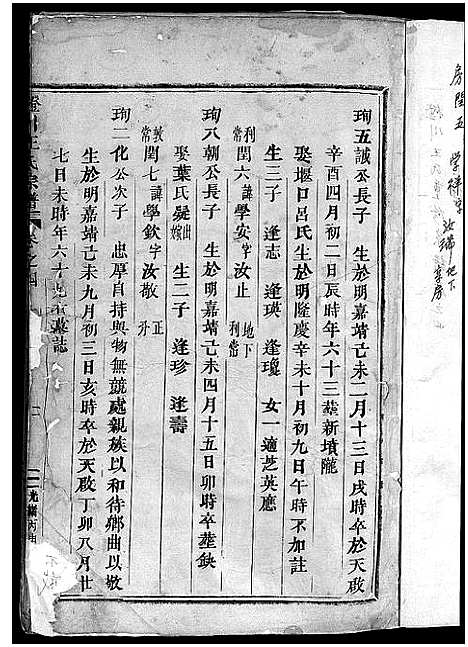 房閏五 學祥字
汝瑞 地下
珣五誠公長子 生於明嘉靖己未二月十三日戌時卒於天啟
辛酉四月初二日辰時年六十三塟新墳隴
娶堰口呂氏生於明隆慶辛未十月初九日午時不加註
生三子 逢志 逢瑛 逢瓊 女一適芝英應
利常閏六諱學安字汝止 地下利常
珣八朝公長子 生於明嘉靖己未四月十五日卯時卒塟缺
娶葉氏髡出嫁 生二子 逢珍 逢壽
敦常閏七諱學欽字汝敬 正升
珣二化公次子 忠厚自持與物無競處親族以和待鄉曲以敬
生於明嘉靖己未九月初三日亥時卒於天啟丁卯八月廿
七日未時年六十九有墓誌
王氏宗譜 卷之四
光緒丙申